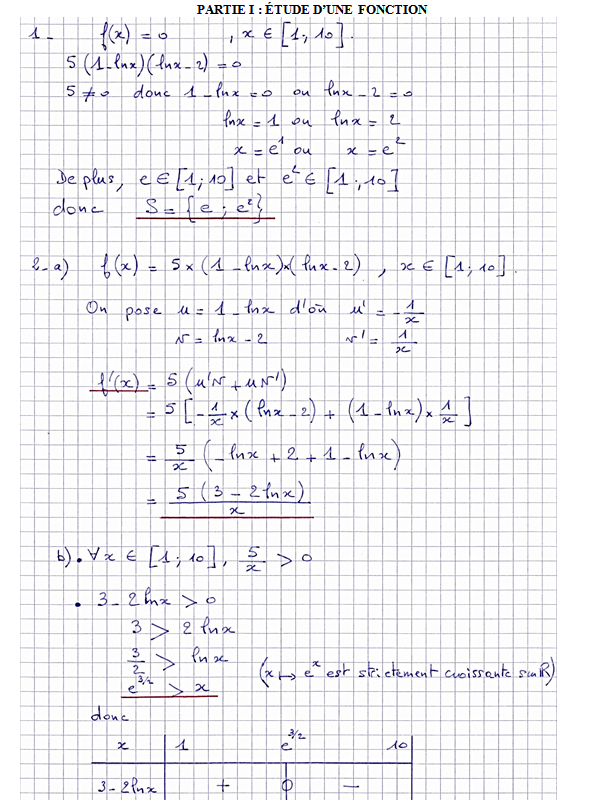 PARTIE I : ÉTUDE D'UNE FONCTION
1- f(x) = 0 , x ∈ [1; 10].
5(1-lnx)(lnx-2) = 0
5 ≠ 0 donc 1-lnx = 0 ou lnx-2 = 0
lnx = 1 ou lnx = 2
x = e^1 ou x = e^2
De plus, e ∈ [1; 10] et e^2 ∈ [1; 10]
donc S = {e ; e^2}
2-a) f(x) = 5×(1-lnx)×(lnx-2) , x ∈ [1; 10].
On pose u = 1-lnx d'où u' = -1/x
v = lnx-2 v' = 1/x
f'(x) = 5(u'v + uv')
= 5[-1/x × (lnx-2) + (1-lnx) × 1/x]
= 5/x (-lnx + 2 + 1 - lnx)
= 5(3-2lnx)/x
b) • ∀x ∈ [1; 10], 5/x > 0
• 3-2lnx > 0
3 > 2lnx
3/2 > lnx
e^3/2 > x (x ↦ e^x est strictement croissante sur ℝ)
donc
x 1 e^3/2 10
3-2lnx + 0 -